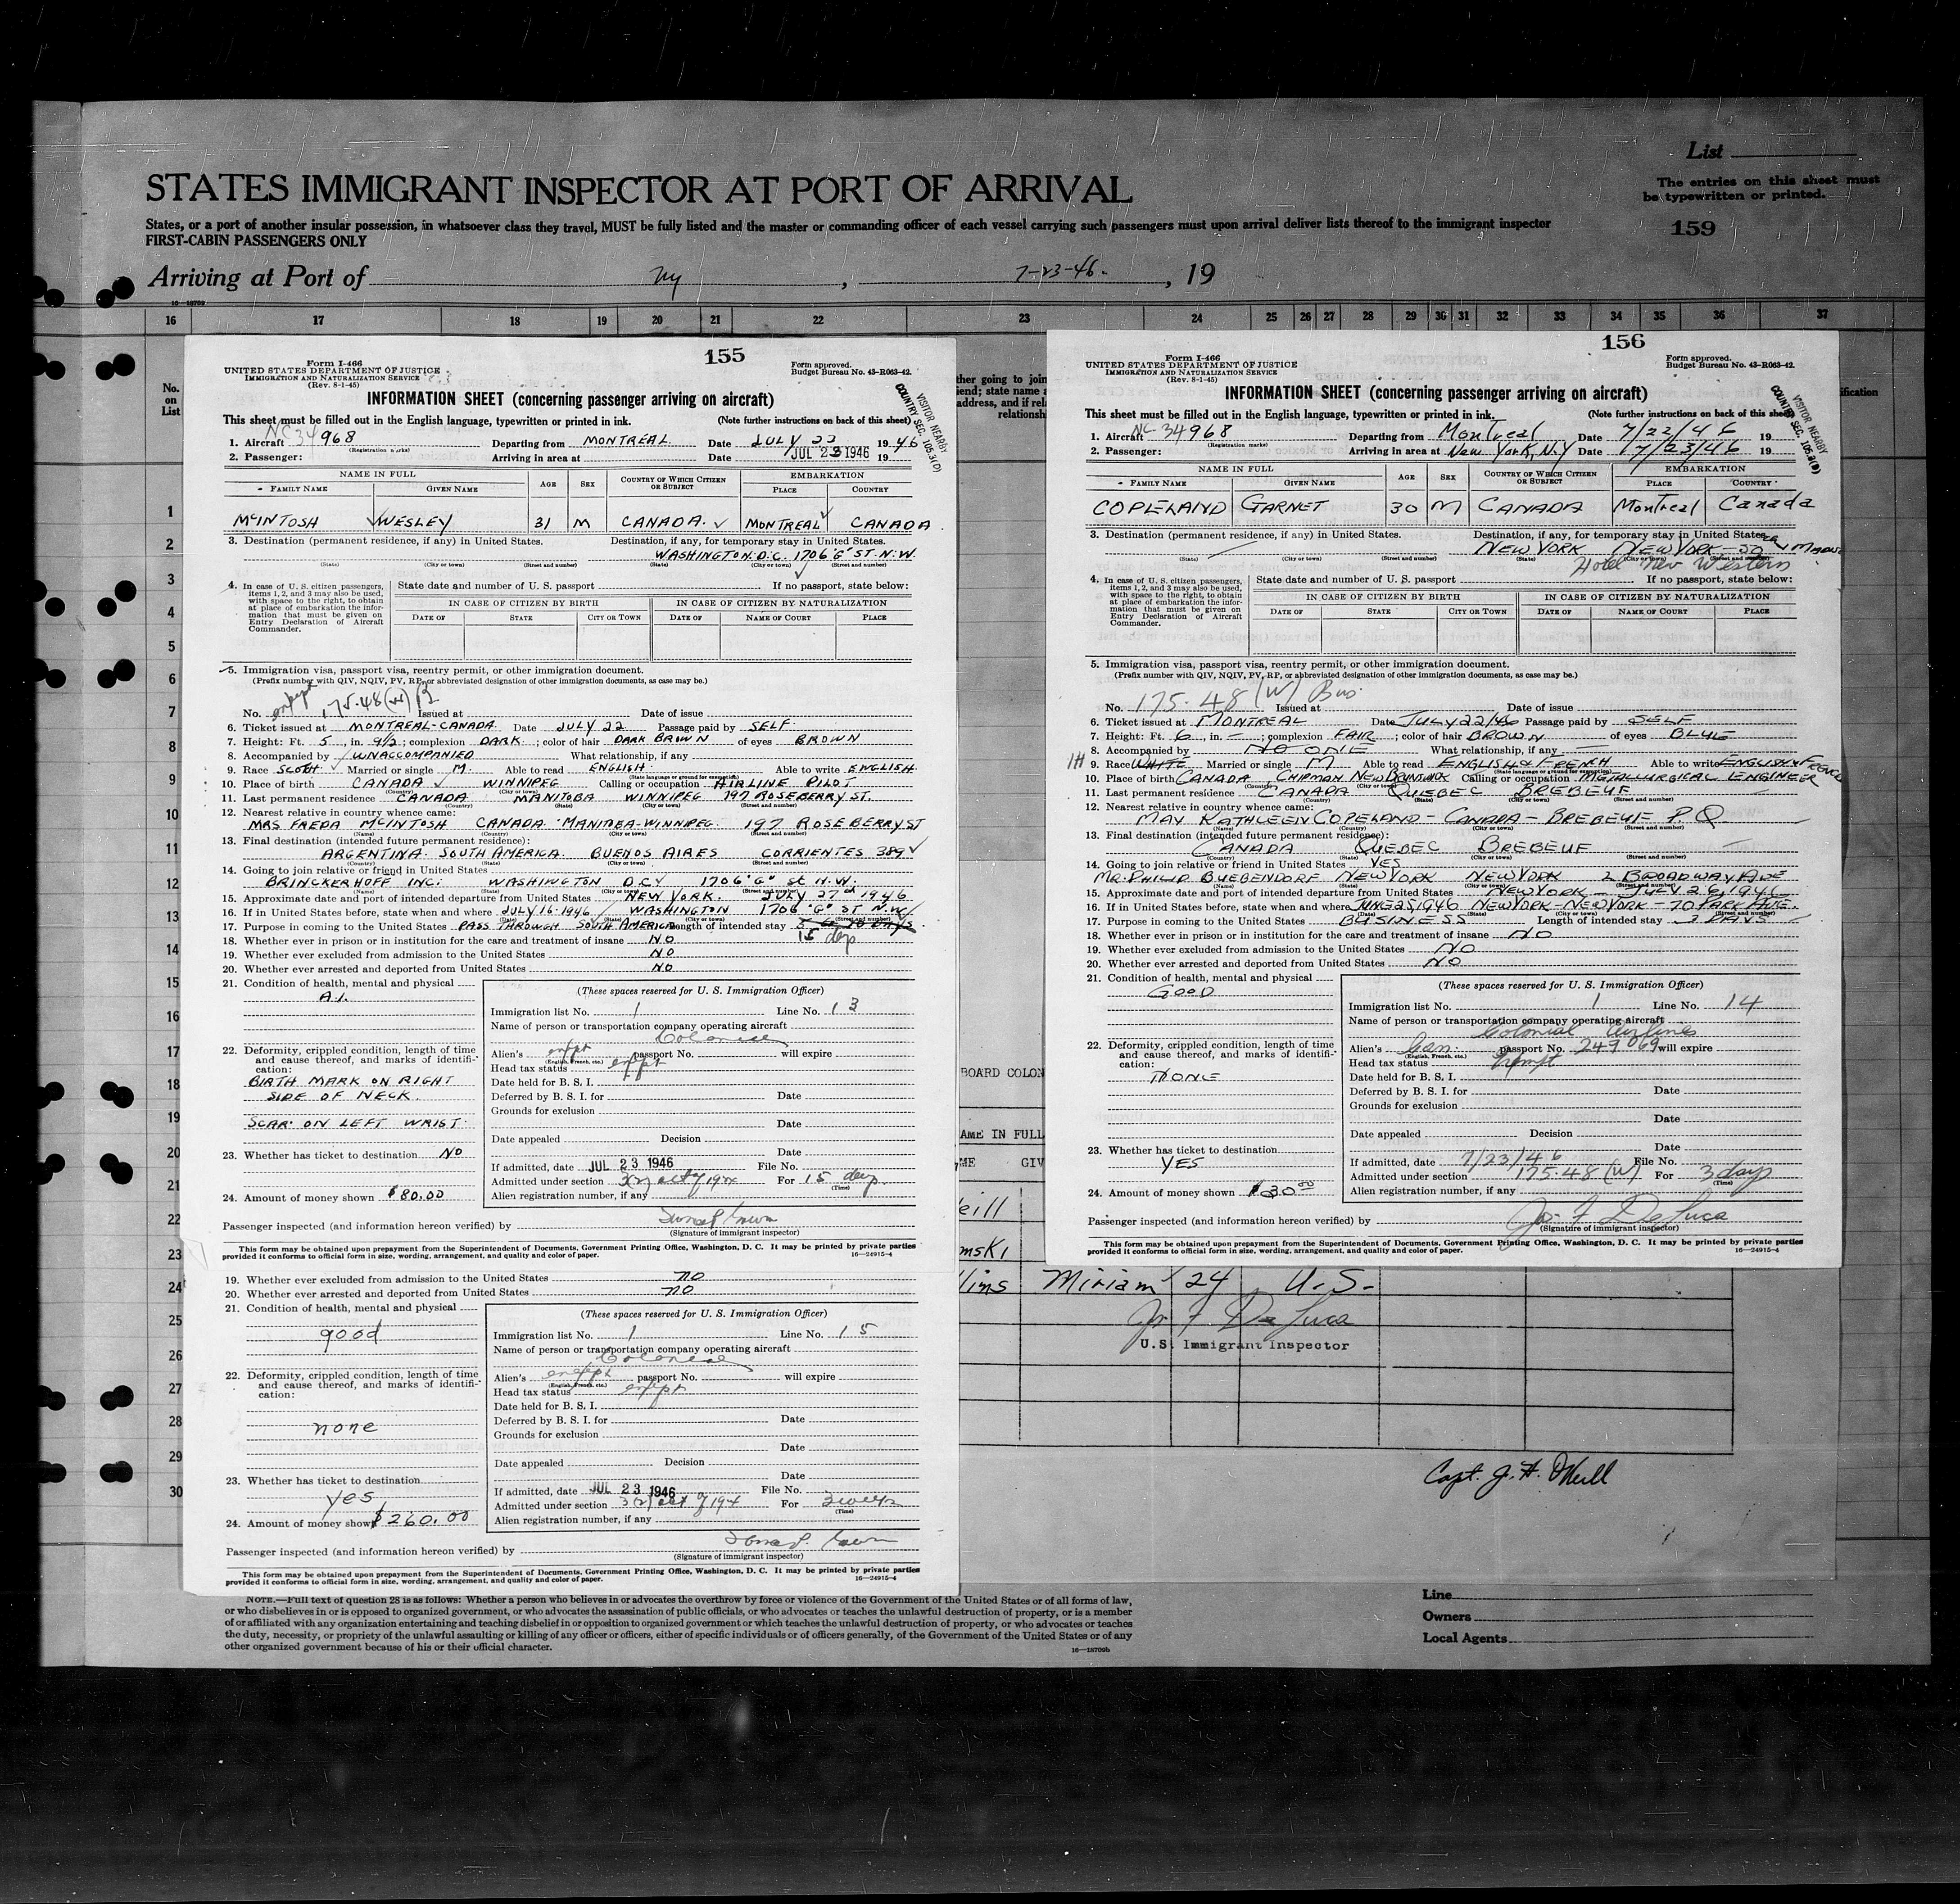 List
The entries on this sheet must
be typewritten or printed.
159
STATES IMMIGRANT INSPECTOR AT PORT OF ARRIVAL
States, or a port of another insular possession, in whatsoever class they travel, MUST be fully listed and the master or commanding officer of each vessel carrying such passengers must upon arrival deliver lists thereof to the immigrant inspector
FIRST-CABIN PASSENGERS ONLY
Arriving at Port of NY, 7-23-46-, 19
16 17 18 19 20 21 22 23 24 25 26 27 28 29 30 31 32 33 34 35 36 37
No.
on
List
1
2
3
4
5
6
7
8
9
10
11
12
13
14
15
16
17
18
19
20
21
22
23
24
25
26
27
28
29
30
155
Form I-466
UNITED STATES DEPARTMENT OF JUSTICE
IMMIGRATION AND NATURALIZATION SERVICE
(Rev. 8-1-45)
Form approved.
Budget Bureau No. 43-R063-42.
VISITOR NEARBY
COUNTRY SEC. 105.3(D)
INFORMATION SHEET (concerning passenger arriving on aircraft)
This sheet must be filled out in the English language, typewritten or printed in ink. (Note further instructions on back of this sheet)
1. Aircraft NC34968 Departing from MONTREAL Date JULY 22 1946
(Registration marks)
2. Passenger: Arriving in area at Date JUL 23 1946 19
NAME IN FULL AGE SEX COUNTRY OF WHICH CITIZEN OR SUBJECT EMBARKATION
FAMILY NAME GIVEN NAME PLACE COUNTRY
McINTOSH WESLEY 31 M CANADA. MONTREAL CANADA
3. Destination (permanent residence, if any) in United States. Destination, if any, for temporary stay in United States.
WASHINGTON. D.C. 1706 "G" ST. N.W.
(State) (City or town) (Street and number) (State) (City or town) (Street and number)
4. In case of U. S. citizen passengers, items 1, 2, and 3 may also be used, with space to the right, to obtain at place of embarkation the information that must be given on Entry Declaration of Aircraft Commander.
State date and number of U. S. passport If no passport, state below:
IN CASE OF CITIZEN BY BIRTH IN CASE OF CITIZEN BY NATURALIZATION
DATE OF STATE CITY OR TOWN DATE OF NAME OF COURT PLACE
5. Immigration visa, passport visa, reentry permit, or other immigration document.
(Prefix number with QIV, NQIV, PV, RP, or abbreviated designation of other immigration documents, as case may be.)
No. 175.48(w) Issued at Date of issue
6. Ticket issued at MONTREAL-CANADA Date JULY 22 Passage paid by SELF
7. Height: Ft. 5, in. 9½; complexion DARK; color of hair DARK BROWN of eyes BROWN
8. Accompanied by UNACCOMPANIED What relationship, if any
9. Race SCOTH Married or single M. Able to read ENGLISH Able to write ENGLISH
10. Place of birth CANADA WINNIPEG Calling or occupation AIRLINE PILOT
11. Last permanent residence CANADA MANITOBA WINNIPEG 197 ROSEBERRY ST.
12. Nearest relative in country whence came:
MRS FREDA McINTOSH CANADA MANITOBA-WINNIPEG. 197 ROSEBERRY ST
13. Final destination (intended future permanent residence):
ARGENTINA. SOUTH AMERICA. BUENOS AIRES CORRIENTES 389
14. Going to join relative or friend in United States
BRINCKERHOFF INC: WASHINGTON D.C. 1706 "G" St N.W.
15. Approximate date and port of intended departure from United States NEW YORK. JULY 27 1946
16. If in United States before, state when and where JULY 16-1946 WASHINGTON 1706 "G" ST N.W.
17. Purpose in coming to the United States PASS THROUGH SOUTH AMERICA Length of intended stay 15 days
18. Whether ever in prison or in institution for the care and treatment of insane NO
19. Whether ever excluded from admission to the United States NO
20. Whether ever arrested and deported from United States NO
21. Condition of health, mental and physical
A.1.
22. Deformity, crippled condition, length of time and cause thereof, and marks of identification:
BIRTH MARK ON RIGHT
SIDE OF NECK.
SCAR. ON LEFT WRIST.
23. Whether has ticket to destination NO
24. Amount of money shown $80.00
(These spaces reserved for U. S. Immigration Officer)
Immigration list No. 1 Line No. 13
Name of person or transportation company operating aircraft
Colonial
Alien's passport No. will expire
(English, French, etc.)
Head tax status
Date held for B. S. I.
Deferred by B. S. I. for Date
Grounds for exclusion
Date
Date appealed Decision
Date
If admitted, date JUL 23 1946 File No.
Admitted under section 3(2) act of 1924 For 15 days
(Time)
Alien registration number, if any
Passenger inspected (and information hereon verified) by
(Signature of immigrant inspector)
This form may be obtained upon prepayment from the Superintendent of Documents, Government Printing Office, Washington, D. C. It may be printed by private parties
provided it conforms to official form in size, wording, arrangement, and quality and color of paper. 16—24915-4
19. Whether ever excluded from admission to the United States no
20. Whether ever arrested and deported from United States no
21. Condition of health, mental and physical
good
22. Deformity, crippled condition, length of time and cause thereof, and marks of identification:
none
23. Whether has ticket to destination
yes
24. Amount of money shown $260.00
(These spaces reserved for U. S. Immigration Officer)
Immigration list No. 1 Line No. 15
Name of person or transportation company operating aircraft
Colonial
Alien's passport No. will expire
(English, French, etc.)
Head tax status
Date held for B. S. I.
Deferred by B. S. I. for Date
Grounds for exclusion
Date
Date appealed Decision
Date
If admitted, date JUL 23 1946 File No.
Admitted under section 3(2) act of 194 For
(Time)
Alien registration number, if any
Passenger inspected (and information hereon verified) by
(Signature of immigrant inspector)
This form may be obtained upon prepayment from the Superintendent of Documents, Government Printing Office, Washington, D. C. It may be printed by private parties
provided it conforms to official form in size, wording, arrangement, and quality and color of paper. 16—24915-4
156
Form I-466
UNITED STATES DEPARTMENT OF JUSTICE
IMMIGRATION AND NATURALIZATION SERVICE
(Rev. 8-1-45)
Form approved.
Budget Bureau No. 43-R063-42.
VISITOR NEARBY
COUNTRY SEC. 105.3(D)
INFORMATION SHEET (concerning passenger arriving on aircraft)
This sheet must be filled out in the English language, typewritten or printed in ink. (Note further instructions on back of this sheet)
1. Aircraft NC 34968 Departing from Montreal Date 7/22/46 19
(Registration marks)
2. Passenger: Arriving in area at New York, N.Y Date 7/23/46 19
NAME IN FULL AGE SEX COUNTRY OF WHICH CITIZEN OR SUBJECT EMBARKATION
FAMILY NAME GIVEN NAME PLACE COUNTRY
COPELAND GARNET 30 M CANADA Montreal Canada
3. Destination (permanent residence, if any) in United States. Destination, if any, for temporary stay in United States.
NEW YORK NEW YORK
Hotel New Western
(State) (City or town) (Street and number) (State) (City or town) (Street and number)
4. In case of U. S. citizen passengers, items 1, 2, and 3 may also be used, with space to the right, to obtain at place of embarkation the information that must be given on Entry Declaration of Aircraft Commander.
State date and number of U. S. passport If no passport, state below:
IN CASE OF CITIZEN BY BIRTH IN CASE OF CITIZEN BY NATURALIZATION
DATE OF STATE CITY OR TOWN DATE OF NAME OF COURT PLACE
5. Immigration visa, passport visa, reentry permit, or other immigration document.
(Prefix number with QIV, NQIV, PV, RP, or abbreviated designation of other immigration documents, as case may be.)
No. 175.48 (W) Bus Issued at Date of issue
6. Ticket issued at MONTREAL Date JULY 22/46 Passage paid by SELF
7. Height: Ft. 6, in. –; complexion FAIR; color of hair BROWN of eyes BLUE
8. Accompanied by NO ONE What relationship, if any —
9. Race WHITE Married or single M Able to read ENGLISH & FRENCH Able to write ENGLISH & FRENCH
10. Place of birth CANADA, CHIPMAN NEW BRUNSWICK Calling or occupation METALLURGICAL ENGINEER
11. Last permanent residence CANADA QUEBEC BREBEUF
12. Nearest relative in country whence came:
MAY KATHLEEN COPELAND - CANADA - BREBEUF P.Q.
13. Final destination (intended future permanent residence):
CANADA QUEBEC BREBEUF
14. Going to join relative or friend in United States YES
MR. PHILIP BUEBENDORF NEW YORK NEW YORK 2 BROADWAY
15. Approximate date and port of intended departure from United States NEW YORK - JULY 26, 194
16. If in United States before, state when and where JUNE 25, 1946 NEW YORK - NEW YORK - 70 PARK AVE.
17. Purpose in coming to the United States BUSINESS Length of intended stay 3 DAYS
18. Whether ever in prison or in institution for the care and treatment of insane NO
19. Whether ever excluded from admission to the United States NO
20. Whether ever arrested and deported from United States NO
21. Condition of health, mental and physical
GOOD
22. Deformity, crippled condition, length of time and cause thereof, and marks of identification:
NONE
23. Whether has ticket to destination
YES
24. Amount of money shown $30.00
(These spaces reserved for U. S. Immigration Officer)
Immigration list No. 1 Line No. 14
Name of person or transportation company operating aircraft
Colonial Airlines
Alien's Can. passport No. 249069 will expire
(English, French, etc.)
Head tax status
Date held for B. S. I.
Deferred by B. S. I. for Date
Grounds for exclusion
Date
Date appealed Decision
Date
If admitted, date 7/23/46 File No.
Admitted under section 175.48 (W) For 3 days
(Time)
Alien registration number, if any
Passenger inspected (and information hereon verified) by Jos. F. DeLuca
(Signature of immigrant inspector)
This form may be obtained upon prepayment from the Superintendent of Documents, Government Printing Office, Washington, D. C. It may be printed by private parties
provided it conforms to official form in size, wording, arrangement, and quality and color of paper. 16—24915-4
BOARD COLON
AME IN FULL
ME GIV
eill
mski
llins Miriam 24 U.S.
Jos F DeLuca
U.S. Immigrant Inspector
Capt. J. H. O'Neill
NOTE.—Full text of question 28 is as follows: Whether a person who believes in or advocates the overthrow by force or violence of the Government of the United States or of all forms of law,
or who disbelieves in or is opposed to organized government, or who advocates the assassination of public officials, or who advocates or teaches the unlawful destruction of property, or is a member
of or affiliated with any organization entertaining and teaching disbelief in or opposition to organized government or which teaches the unlawful destruction of property, or who advocates or teaches
the duty, necessity, or propriety of the unlawful assaulting or killing of any officer or officers, either of specific individuals or of officers generally, of the Government of the United States or of any
other organized government because of his or their official character.
16—18709b
Line
Owners
Local Agents